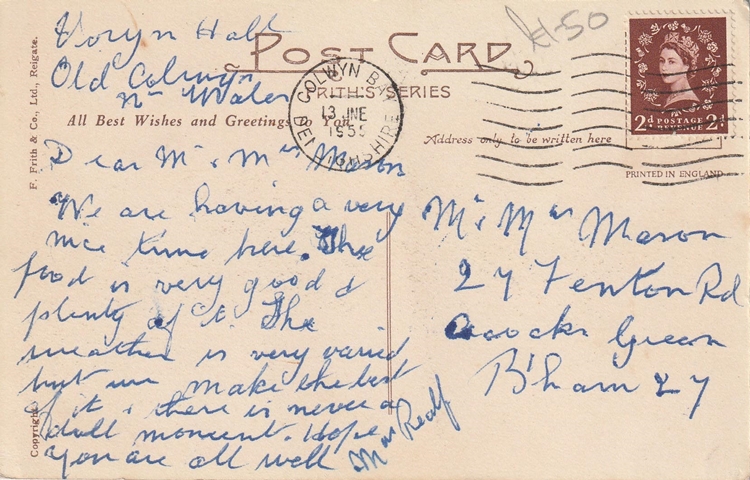 Voryn Hall
Old Colwyn
Nr Wales
£1-50
POST CARD
FRITH'S SERIES
All Best Wishes and Greetings to You
COLWYN BAY
13 JNE
1955
DENBIGHSHIRE
2d POSTAGE REVENUE 2d
Address only to be written here
PRINTED IN ENGLAND
F. Frith & Co., Ltd., Reigate.
Copyright
Dear Mr & Mrs Mason
We are having a very
nice time here. The
food is very good &
plenty of it. The
weather is very varied
but we make the best
of it & there is never a
dull moment. Hope
you are all well
Mrs
Mr & Mrs Mason
27 Fenton Rd
Acocks Green
B'ham 27